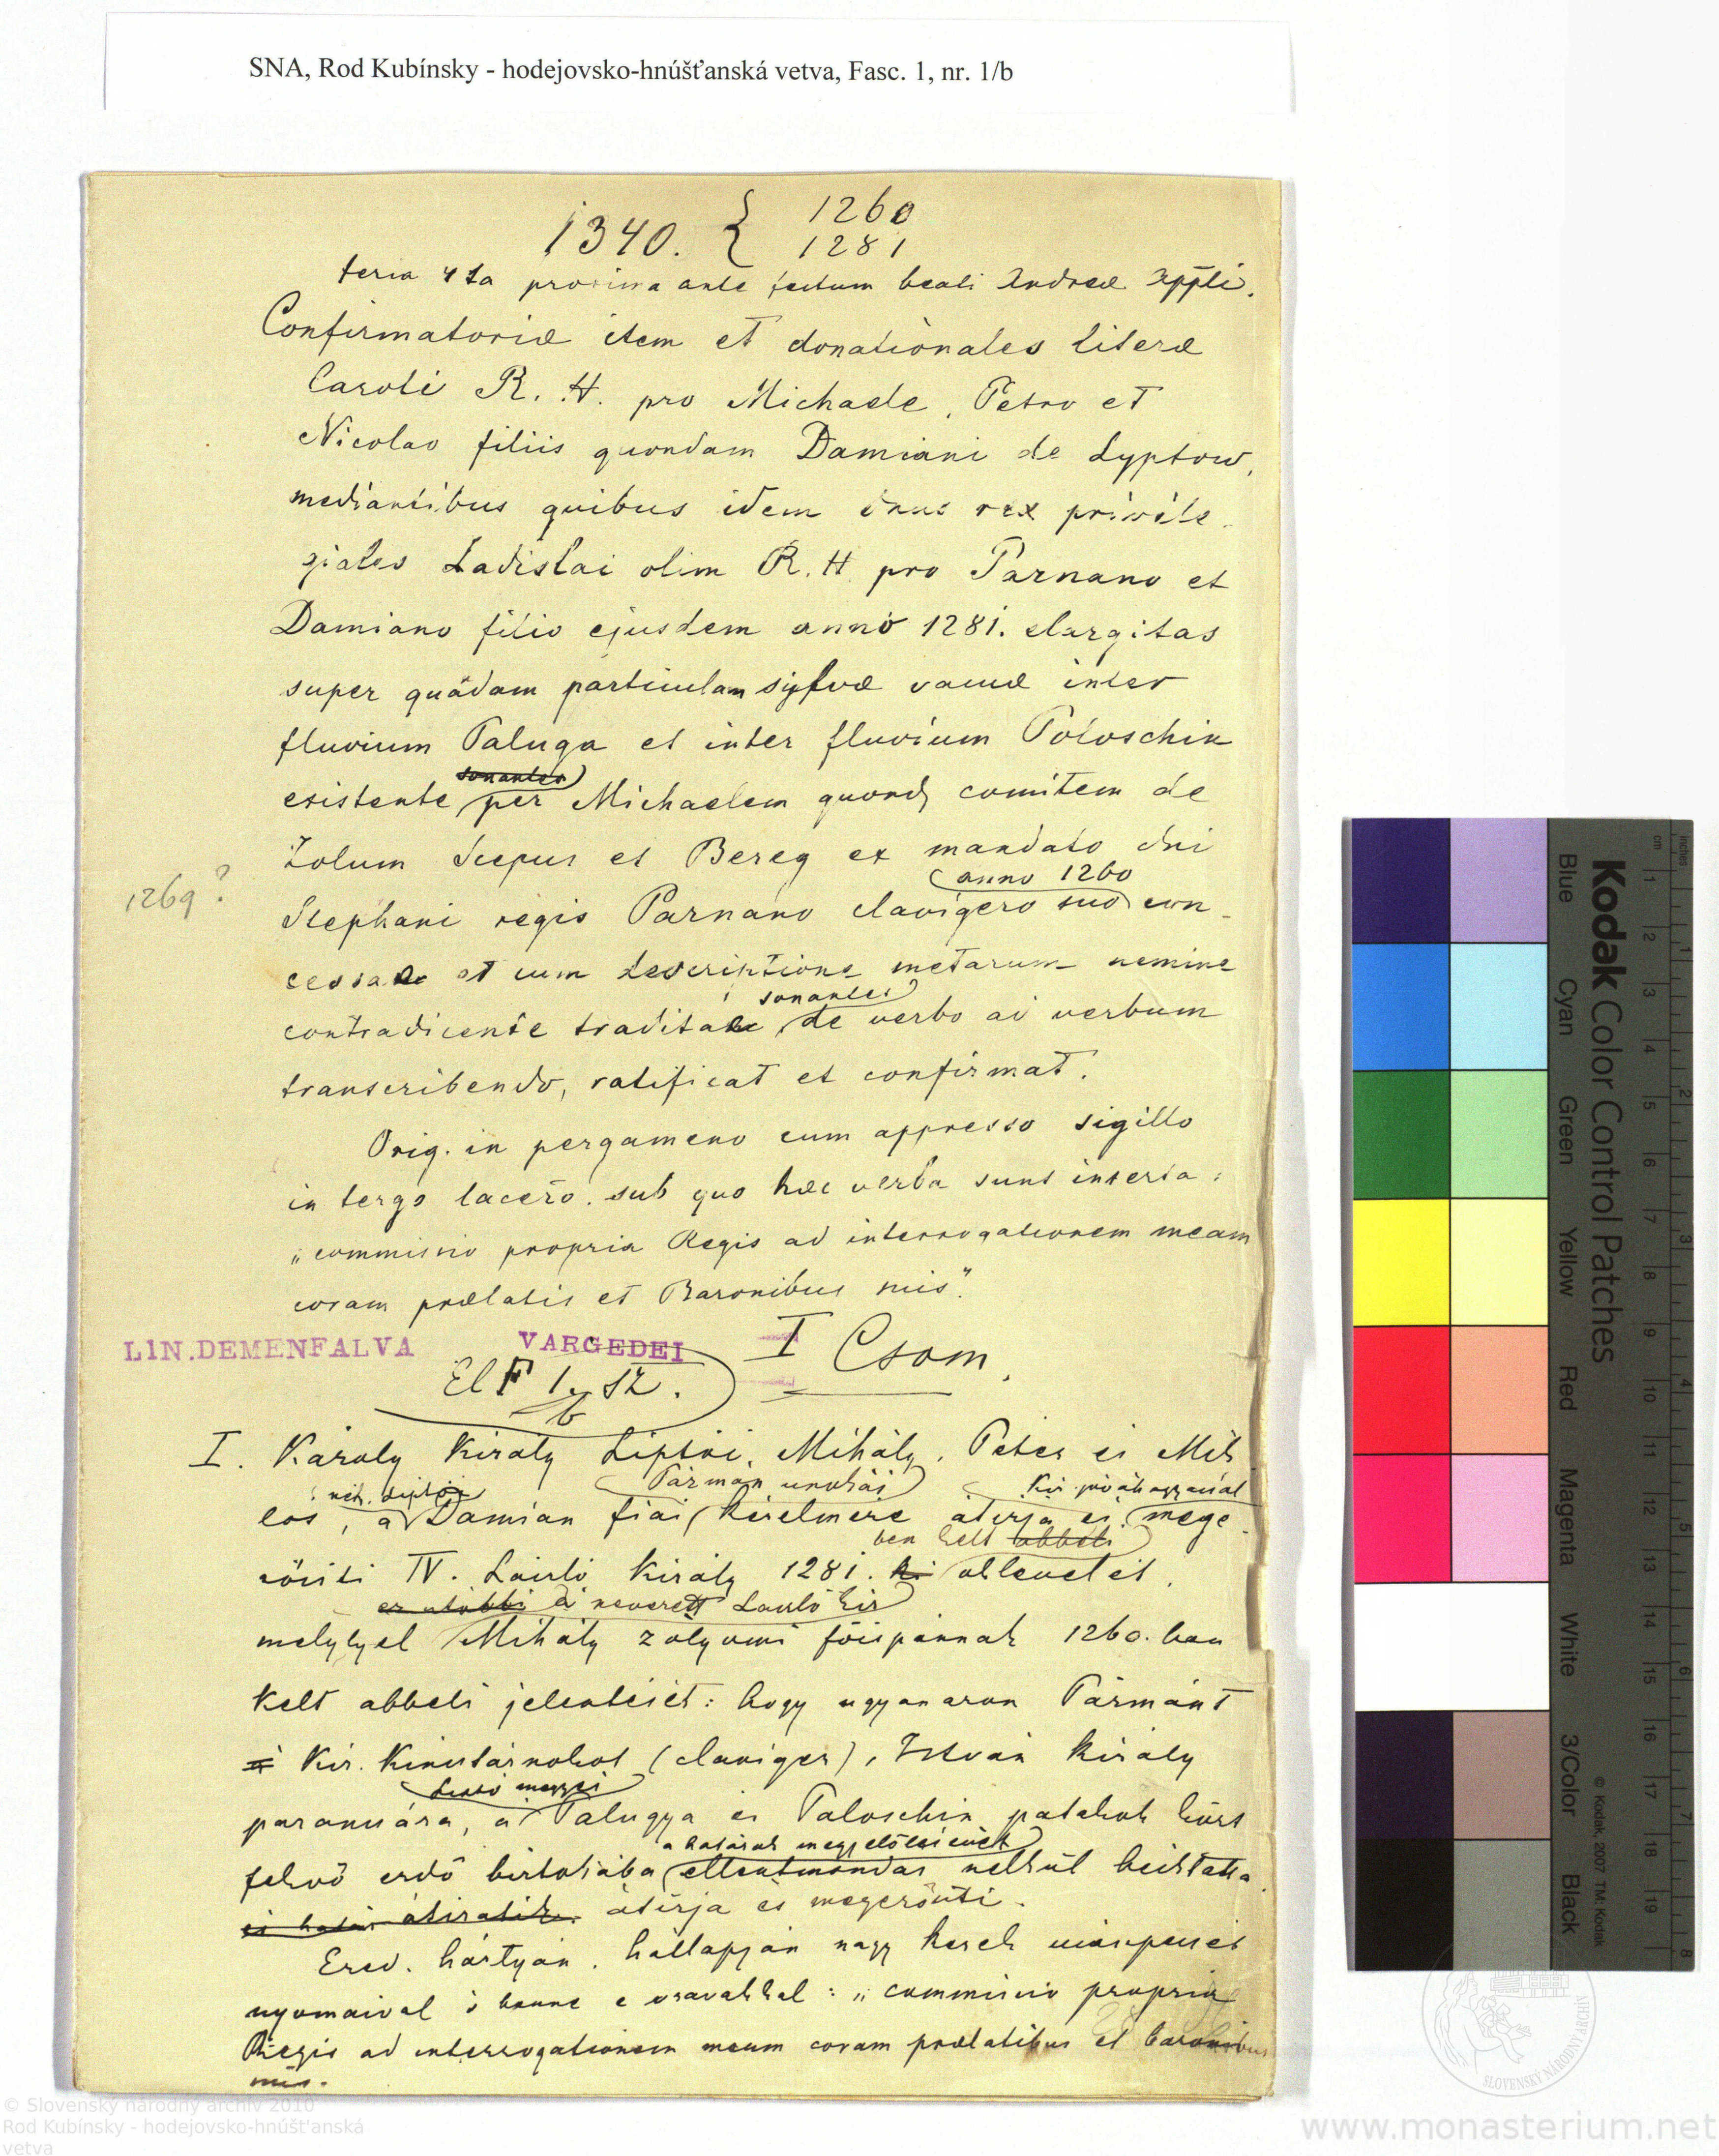 SNA, Rod Kubínsky - hodejovsko-hnúšťanská vetva, Fasc. 1, nr. 1/b
1340. { 1260
1281
feria 4ta proxima ante festum beati Andreæ Appli.
Confirmatoriæ item et donationales literæ
Caroli R. H. pro Michaele, Petro et
Nicolao filiis quondam Damiani de Lyptow,
mediantibus quibus idem dnus rex privile-
giales Ladislai olim R. H. pro Parnano et
Damiano filio ejusdem anno 1281. elargitas
super quadam particulam sylvæ vacuæ inter
fluvium Paluga et inter fluvium Poloschin
sonantes
existente per Michaelem quond comitem de
Zolum Scepus et Bereg ex mandato dni
anno 1260
1269?
Stephani regis Parnano clavigero suo con-
cessa et cum descriptione metarum nemine
sonantes
contradicente tradita de verbo ad verbum
transcribendo, ratificat et confirmat.
Orig. in pergameno cum appresso sigillo
in tergo lacero. sub quo hæc verba sunt inserta:
„commissio propria Regis ad interrogationem meam
coram prælatis et Baronibus mis".
LIN.DEMENFALVA VARGEDEI I Csom.
El F 1. sz.
b
I. Károly Király Liptói, Mihály, Péter és Mik-
Párman unokái
los, a Damián fiai kérelmére átirja és mege-
ben kelt abbeli
rősiti IV. László Király 1281. ki oklevelét,
a nevezett László kir
melylyel Mihály zólyomi főispánnak 1260. ban
kelt abbeli jelentését: hogy ugyanazon Pármánt
Kir. Kulcsárnokot (claviger), István király
Liptó megyei
parancsára, a Palugya és Paloschin patakok közt
a határok megjelölésével
fekvő erdő birtokába ellentmondás nélkül beiktatta
átirja és megerősiti.
Ered. hártyán. hátlapján nagy kerek viaszpecsét
nyomaival s benne e szavakkal: „commissio propria
Regis ad interrogationem meam coram prælatibus et baronibus
mis.
Kodak Color Control Patches
Blue
Cyan
Green
Yellow
Red
Magenta
White
3/Color
Black
© Kodak, 2007 TM: Kodak
inches
cm
1
2
3
4
5
6
7
8
9
10
11
12
13
14
15
16
17
18
19
1
2
3
4
5
6
7
8
SLOVENSKÝ NÁRODNÝ ARCHÍV
© Slovenský národný archív 2010
Rod Kubínsky - hodejovsko-hnúšt'anská
vetva
www.monasterium.net